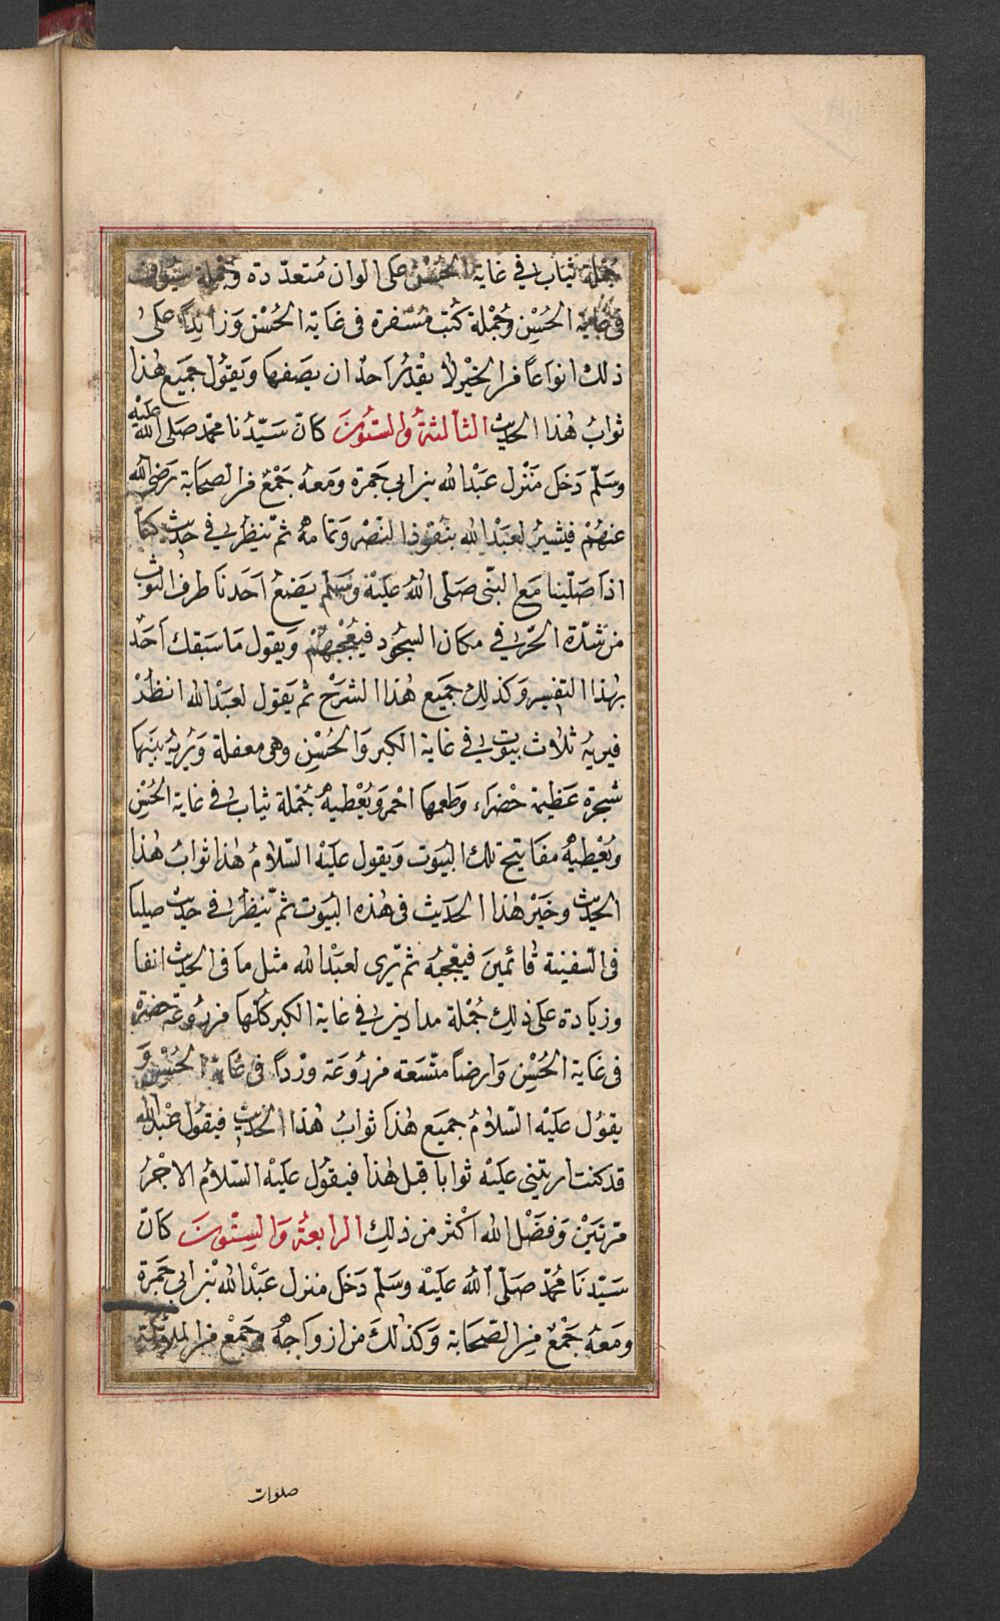 جُملة ثياب في غاية الحُسْن على الوان مُتعدّدة وجُملة سُيوف
في غاية الحُسْنِ وجُمْلة كُتب مُسَفرة فى غاية الحُسْن وَزايداً على
ذلك انواعاً من الخيْر لا يقْدِرُ احدٌ ان يصَفها ويَقوُل جميَع هٰذا
ثوابُ هٰذا الحديث الثالثةُ والستوُنَ كانَ سَيّدُنا محمّد صَلى الله عليْه
وسَلّم دَخل مَنْزل عبَدْ الله بن ابي جَمرة ومَعهُ جَمْعٌ من الصحابة رَضى الله
عنهُمْ فيشيرُ لعبَدْ الله بنفوذ النّصْر وَتمامهُ ثمّ ينظرُ في حديث كنّا
اذا صَلّينا مَع النبّى صَلّى اللهُ عليْه وسَلّم يَضعُ اَحَدنا طرف الثوب
من شدّة الحّر في مكان السجُود فيُعْجبهُمْ وَيقول مَا سَبقك اَحَدٌ
بهٰذا التفسير وَكذلِك جميَع هٰذا الشرَحْ ثم يَقول لعبَدْ الله انظرْ
فيريهُ ثلاث بيُوت في غاية الكبر وَالحُسْنِ وهى مقفلة وَيُريهُ بيَنها
شجرة عَظيمَة خضرَاء وَطعمها احْمر ويُعْطيهُ جُمْلة ثياب في غاية الحُسْنِ
ويُعْطيهُ مفاتيح تلك البيُوت وَيقول عليْه السّلامُ هٰذا ثوابُ هٰذا
الحديث وخَيرْ هٰذا الحدَيث فى هٰذه البُيوت ثمّ ينظُر في حديث صلينا
فى السّفينة قائمينَ فيعْجبُه ثم يرّى لعبَدْ الله مثل ما فى الحديث انفا
وزيادة على ذلِك جُمْلة مداين في غاية الكبر كلّها مزروُعَة خضرة
فى غاية الحُسْنِ وَارضاً متّسَعة مزروُعَة ورْداً فى غاية الحُسْن وَ
يقوُل عليْه السّلامُ جميَع هٰذا ثوابُ هٰذا الحديث فيقوُل عبْد الله
قد كنت اريتنى عليْه ثواباً قبل هٰذا فيقوُل عليْه السّلامُ الاجْرُ
مرّتيَنْ وَفضْل الله اكثر من ذلِك الرابعةُ وَالسِتّونَ كانَ
سَيّدنَا مُحمّد صَلّى اللهُ عليْه وسَلّم دَخل منزل عَبْد الله بْن ابي جَمرة
ومَعهُ جَمْعٌ مِن الصّحَابة وَكذلكَ من ازواجهُ وجَمعْ من الملائكة
صلوات